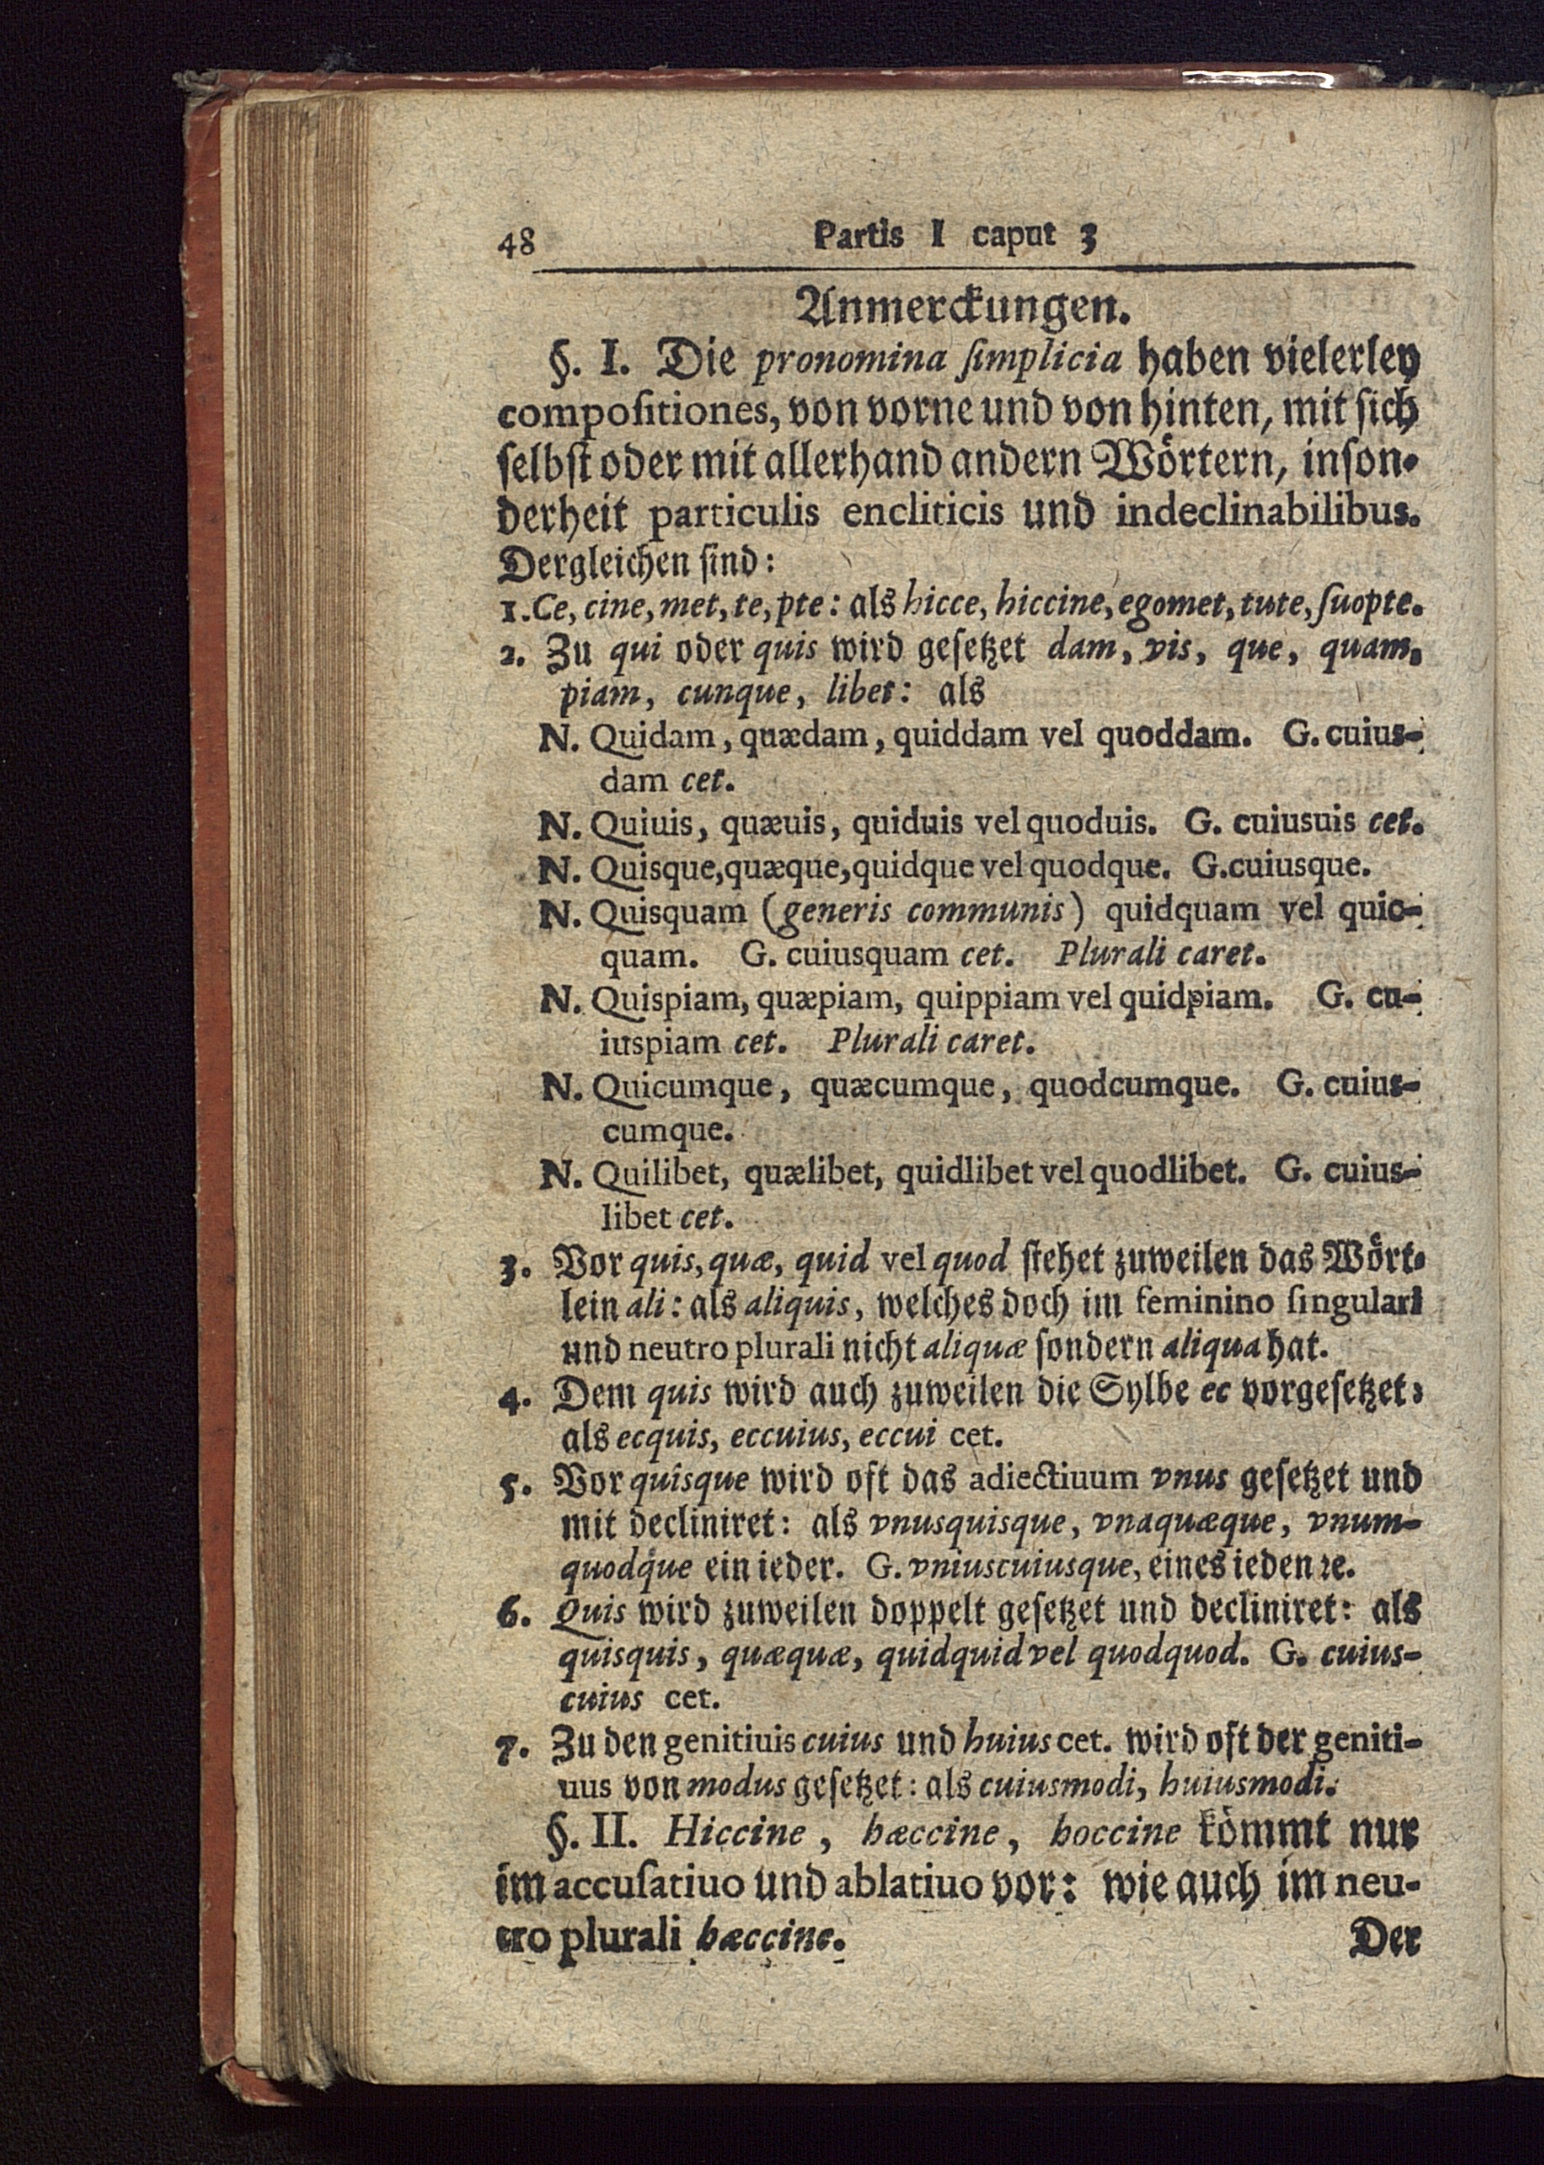 48 Partis I caput 3
Anmerckungen.
§. I. Die pronomina ſimplicia haben vielerley
compoſitiones, von vorne und von hinten, mit ſich
ſelbſt oder mit allerhand andern Wörtern, inſon-
derheit particulis encliticis und indeclinabilibus.
Dergleichen ſind:
1. Ce, cine, met, te, pte: als hicce, hiccine, egomet, tute, ſuopte.
2. Zu qui oder quis wird geſetzet dam, vis, que, quam,
piam, cunque, libet: als
N. Quidam, quædam, quiddam vel quoddam. G. cuius-
dam cet.
N. Quiuis, quæuis, quiduis vel quoduis. G. cuiusuis cet.
N. Quisque, quæque, quidque vel quodque. G. cuiusque.
N. Quisquam (generis communis) quidquam vel quic-
quam. G. cuiusquam cet. Plurali caret.
N. Quispiam, quæpiam, quippiam vel quidpiam. G. cu-
iuspiam cet. Plurali caret.
N. Quicumque, quæcumque, quodcumque. G. cuius-
cumque.
N. Quilibet, quælibet, quidlibet vel quodlibet. G. cuius-
libet cet.
3. Vor quis, quæ, quid vel quod ſtehet zuweilen das Wört-
lein ali: als aliquis, welches doch im feminino ſingulari
und neutro plurali nicht aliquæ ſondern aliqua hat.
4. Dem quis wird auch zuweilen die Sylbe ec vorgeſetzet:
als ecquis, eccuius, eccui cet.
5. Vor quisque wird oft das adiectiuum vnus geſetzet und
mit decliniret: als vnusquisque, vnaquæque, vnum-
quodque ein ieder. G. vniuscuiusque, eines ieden ꝛc.
6. Quis wird zuweilen doppelt geſetzet und decliniret: als
quisquis, quæquæ, quidquid vel quodquod. G. cuius-
cuius cet.
7. Zu den genitiuis cuius und huius cet. wird oft der geniti-
uus von modus geſetzet: als cuiusmodi, huiusmodi.
§. II. Hiccine, hæccine, hoccine kömmt nur
im accuſatiuo und ablatiuo vor: wie auch im neu-
tro plurali hæccine. Der